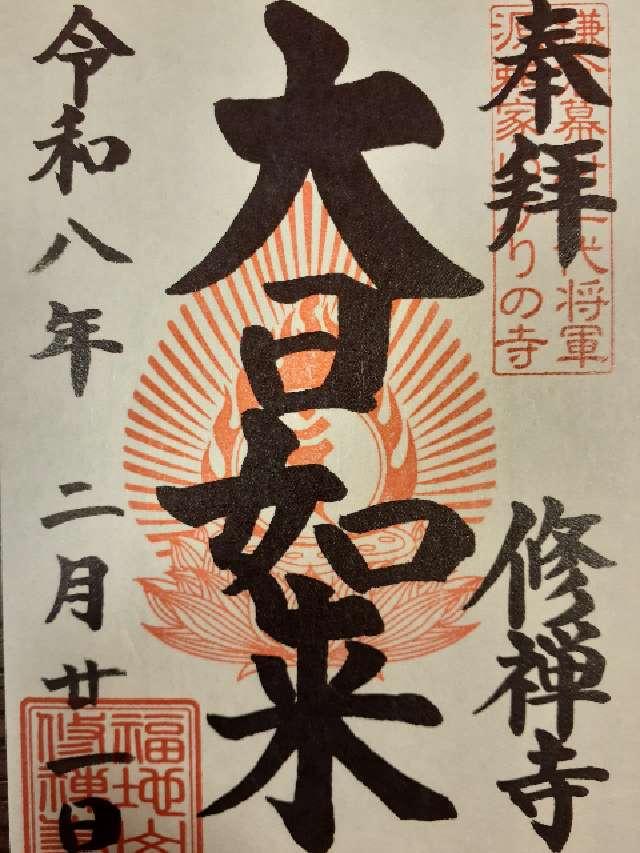 奉拝
鎌倉幕府二代将軍
源頼家ゆかりの寺
修禅寺
大日如来
令和八年 二月廿一日
福地山
修禅寺